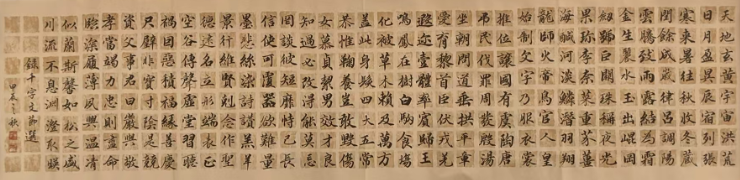 天地玄黃宇宙洪荒
日月盈昃辰宿列張
寒來暑往秋收冬藏
閏餘成歲律呂調陽
雲騰致雨露結為霜
金生麗水玉出崑岡
劍號巨闕珠稱夜光
果珍李柰菜重芥薑
海鹹河淡鱗潛羽翔
龍師火帝鳥官人皇
始制文字乃服衣裳
推位讓國有虞陶唐
弔民伐罪周發殷湯
坐朝問道垂拱平章
愛育黎首臣伏戎羌
遐邇壹體率賓歸王
鳴鳳在樹白駒食場
化被草木賴及萬方
蓋此身髮四大五常
恭惟鞠養豈敢毀傷
女慕貞絜男效才良
知過必改得能莫忘
罔談彼短靡恃己長
信使可覆器欲難量
墨悲絲染詩讚羔羊
景行維賢剋念作聖
德建名立形端表正
空谷傳聲虛堂習聽
禍因惡積福緣善慶
尺璧非寶寸陰是競
資父事君曰嚴與敬
孝當竭力忠則盡命
臨深履薄夙興溫凊
似蘭斯馨如松之盛
川流不息淵澄取映
錄千字文節選
甲辰年秋